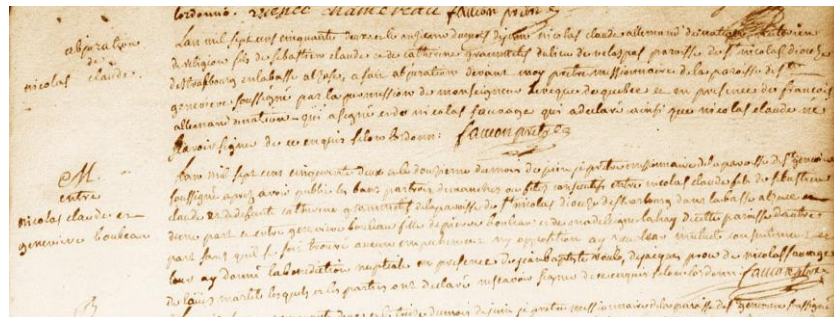 faucon prétre
abjuration
de
nicolas claude.
Lan mil sept cens cinquante deux le onzieme du mois de juin nicolas claude allemand de nation
de religion fils de sebastien claude et de catherine du lieu de paroisse de St nicolas diocese
de strasbourg en la basse alsace, a fait abjuration devant moy pretre missionnaire de la paroisse de Ste
genevieve soussigné par la permission de monseigneur leveque de quebec et en presence de francois
allemand de nation qui a signé et de nicolas sauvage qui a declaré ainsi que nicolas claude ne
savoir signer de ce enquis selon lordonn: faucon prétre
M.
entre
nicolas claude et
genevieve bouleau
Lan mil sept cens cinquante deux et le douzieme du mois de juin je pretre missionnaire de la paroisse de Ste genevieve
soussigné apres avoir publié les bans par trois dimanches ou fetes consecutifs entre nicolas claude fils de sebastien
claude et de defunte catherine de la paroisse de St nicolas diocese de strasbourg dans la basse alsace
dune part et entre genevieve bouleau fille de pierre bouleau et de madeleine la hay de cette paroisse dautre
part sans quil se soit trouvé aucun empechement ny opposition ay receu leur mutuel consentement et
leur ay donné la benediction nuptiale en presence de jean baptiste de jacques de nicolas sauvage
de loüis lesquels et les parties ont declaré ne savoir signer de ce enquis selon lordonn: faucon ptre
du mois de juin je pretre missionnaire de la paroisse de Ste genevieve soussigné